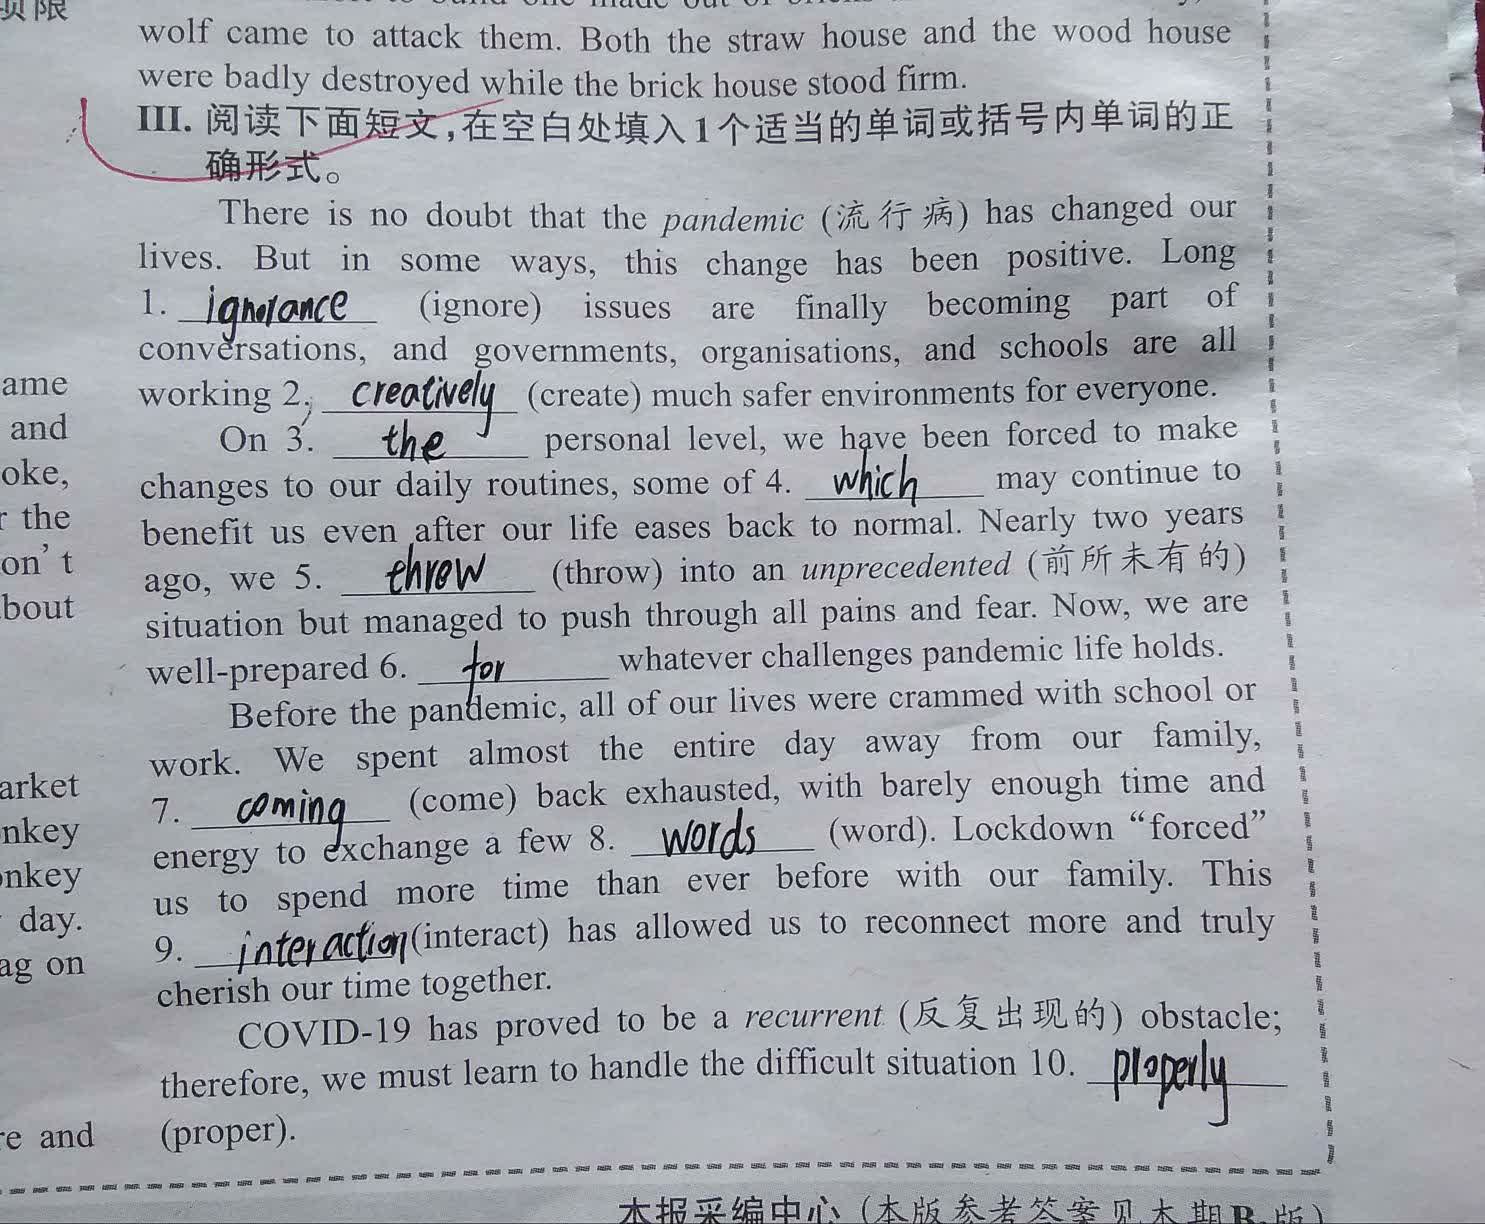 wolf came to attack them. Both the straw house and the wood house
were badly destroyed while the brick house stood firm.
III. 阅读下面短文,在空白处填入1个适当的单词或括号内单词的正
确形式。
There is no doubt that the pandemic (流行病) has changed our
lives. But in some ways, this change has been positive. Long
1. ignorance (ignore) issues are finally becoming part of
conversations, and governments, organisations, and schools are all
working 2. creatively (create) much safer environments for everyone.
On 3. the personal level, we have been forced to make
changes to our daily routines, some of 4. which may continue to
benefit us even after our life eases back to normal. Nearly two years
ago, we 5. threw (throw) into an unprecedented (前所未有的)
situation but managed to push through all pains and fear. Now, we are
well-prepared 6. for whatever challenges pandemic life holds.
Before the pandemic, all of our lives were crammed with school or
work. We spent almost the entire day away from our family,
7. coming (come) back exhausted, with barely enough time and
energy to exchange a few 8. words (word). Lockdown “forced”
us to spend more time than ever before with our family. This
9. interaction (interact) has allowed us to reconnect more and truly
cherish our time together.
COVID-19 has proved to be a recurrent (反复出现的) obstacle;
therefore, we must learn to handle the difficult situation 10. properly
(proper).
ame
and
oke,
the
on't
bout
arket
nkey
nkey
day.
ag on
re and
本报采编中心(本版参考答案见本期B版)